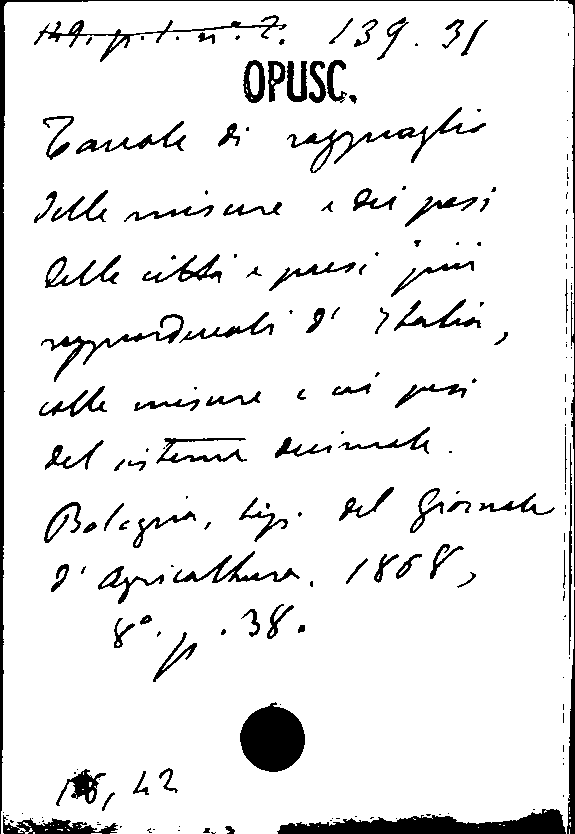 149. p. 1. n° 2. 139. 31
OPUSC.
Tavole di ragguaglio
delle misure e dei pesi
delle città e paesi più
ragguardevoli d' Italia,
colle misure e coi pesi
del sistema decimale.
Bologna, tip. del Giornale
d' Agricoltura. 1868,
8°. p. 38.
, 42